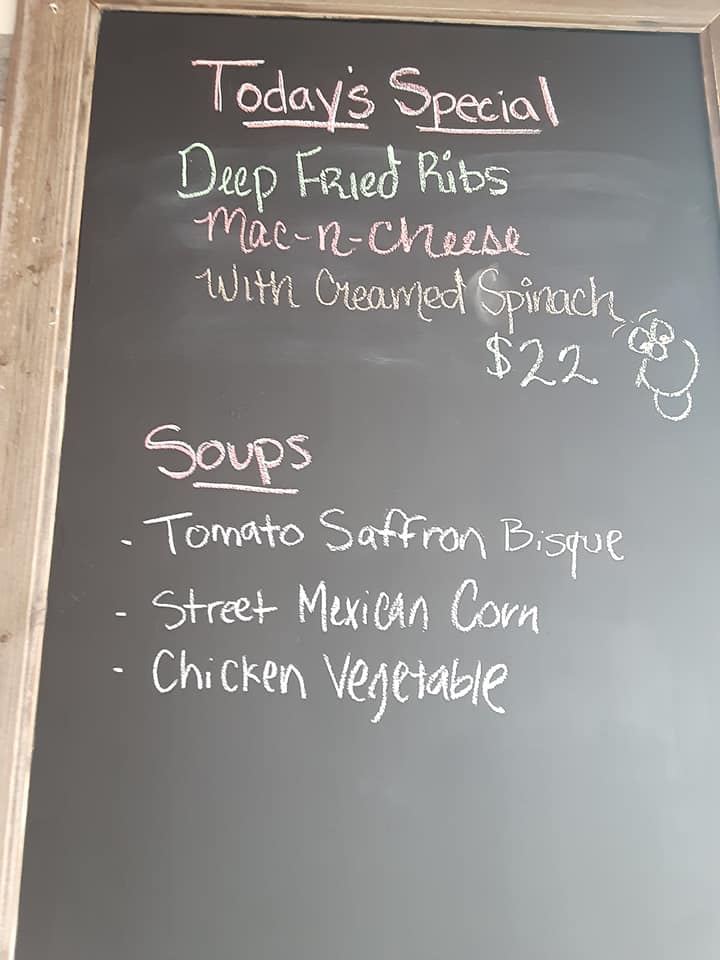 Today's Special
Deep Fried Ribs
Mac-n-Cheese
With Creamed Spinach
$22
Soups
- Tomato Saffron Bisque
- Street Mexican Corn
- Chicken Vegetable